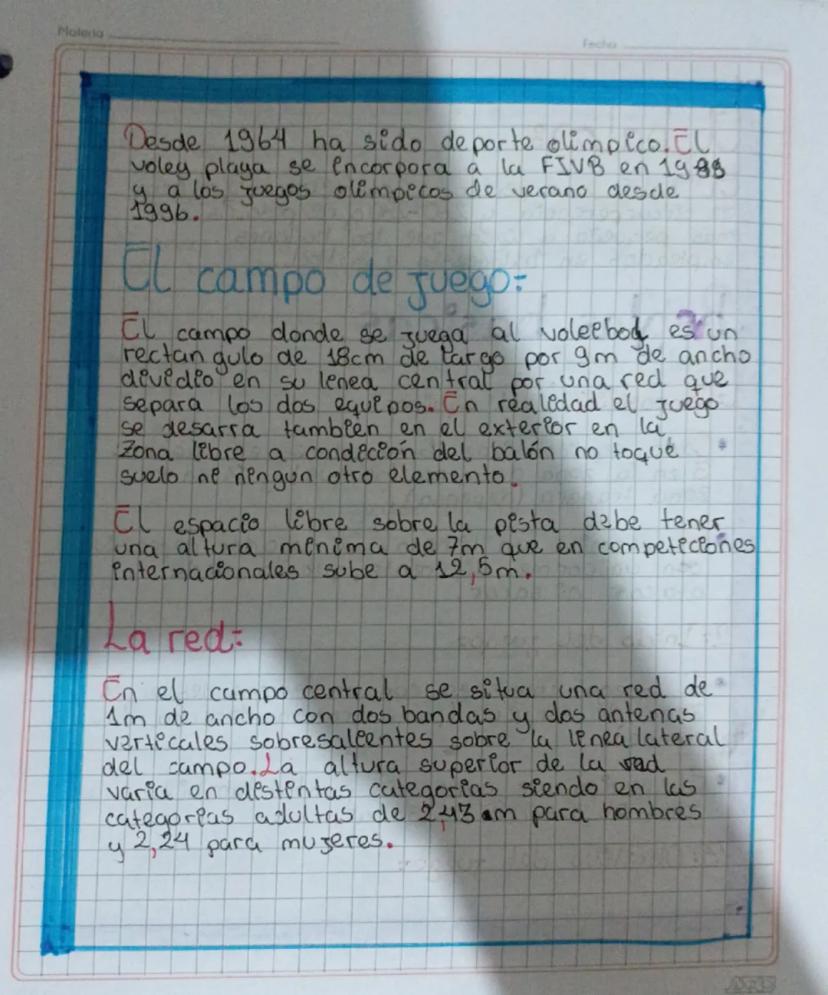 Materia
Fecha
Desde 1964 ha sido deporte olimpico. El
voley playa se incorpora a la FIVB en 1988
y a los juegos olimpicos de verano desde
1996.
El campo de juego:
El campo donde se juega al voleebol es un
rectangulo de 18cm de largo por 9m de ancho
devedio en su lenea central por una red que
separa los dos equipos. En realidad el juego
se desarra tambien en el exterior en la
zona libre a condición del balón no toque
suelo ni ningun otro elemento.
El espacio libre sobre la pista debe tener
una altura minima de 7m que en competiciones
internacionales sube a 12,5m.
La red:
En el campo central se situa una red de
1m de ancho con dos bandas y dos antenas
verticales sobresalientes sobre la linea lateral
del campo. La altura superior de la red
varia en distintas categorias siendo en las
categorias adultas de 2,43 m para hombres
y 2,24 para mujeres.